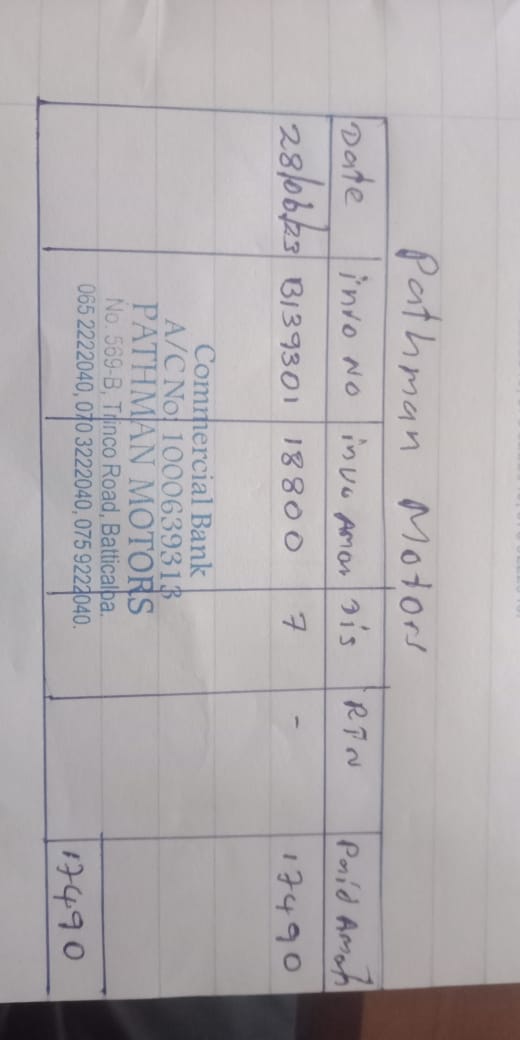 Pathman Motors
Date invo NO invo Amou Dis RTN Paid Amot
28/06/23 B139301 18800 7 - 17490
Commercial Bank
A/C No: 1000639313
PATHMAN MOTORS
No. 569-B, Trinco Road, Batticaloa.
065 2222040, 070 3222040, 075 9222040.
17490